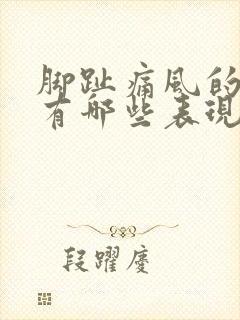 脚趾痛風的
有哪些表現
段躍慶